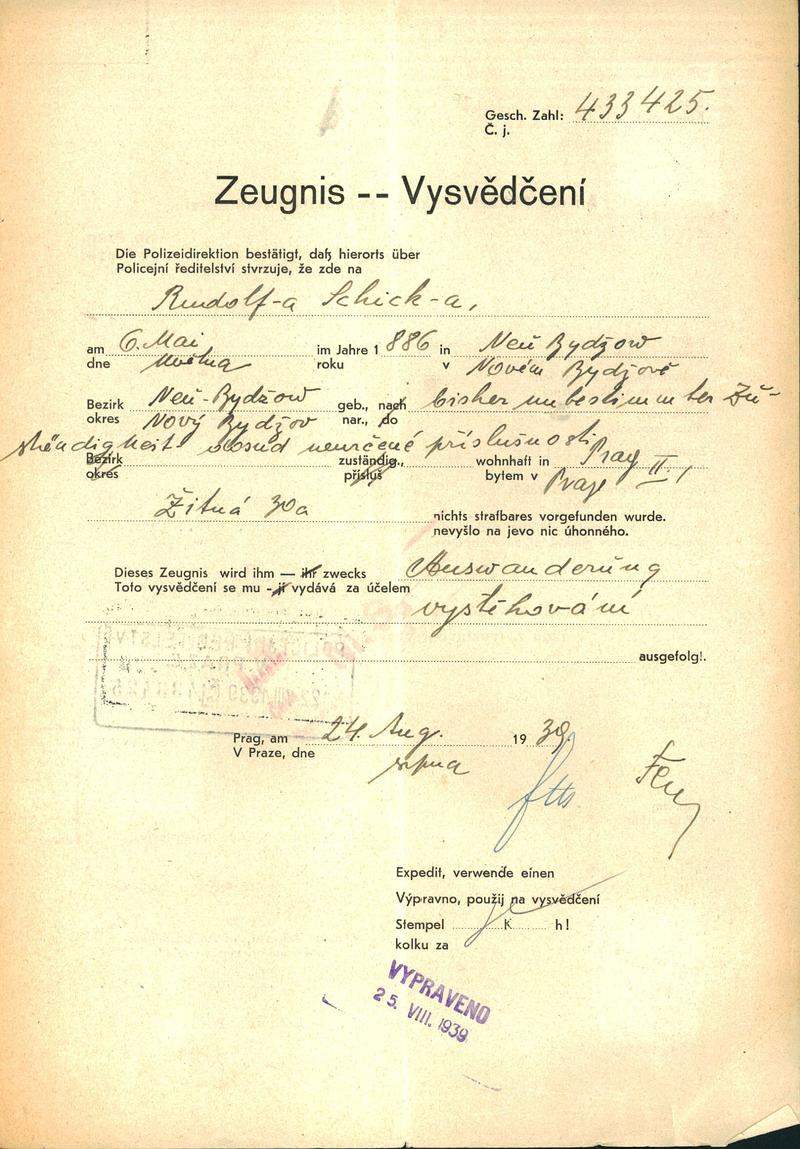 Gesch. Zahl: 433425.
Č. j.
Zeugnis -- Vysvědčení
Die Polizeidirektion bestätigt, daß hierorts über
Policejní ředitelství stvrzuje, že zde na
Rudolf-a Schick-a,
am 6. Mai im Jahre 1 886 in Neu Bydžow
dne května roku v Novém Bydžově
Bezirk Neu-Bydžow geb., nach bisher unbestimmter Zu-
okres Nový Bydžov nar., do
ständigkeit dosud neurčené příslušnosti
Bezirk zuständig., wohnhaft in Prag II.,
okres přísluš bytem v Praze
Žitná 30a nichts strafbares vorgefunden wurde.
nevyšlo na jevo nic úhonného.
Dieses Zeugnis wird ihm — ihr zwecks Auswanderung
Toto vysvědčení se mu - jí vydává za účelem vystěhování
ausgefolg!.
Prag, am 24. Aug. 19 39.
V Praze, dne srpna
Expedit, verwende einen
Výpravno, použij na vysvědčení
Stempel K h!
kolku za
VYPRAVENO
25. VIII. 1939